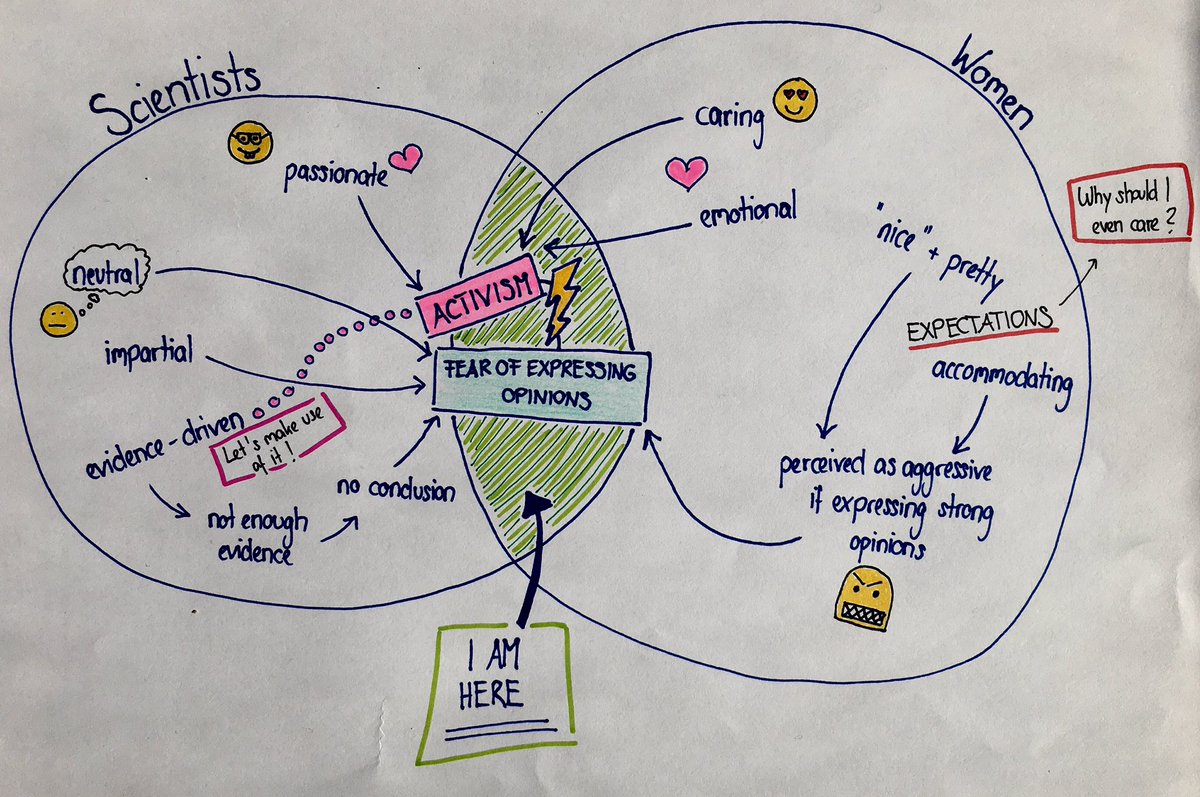 Scientists
Women
passionate
caring
emotional
"nice" + pretty
Why should I
even care?
EXPECTATIONS
accommodating
neutral
impartial
evidence-driven
Let's make use
of it!
not enough
evidence
no conclusion
ACTIVISM
FEAR OF EXPRESSING
OPINIONS
perceived as aggressive
if expressing strong
opinions
I AM
HERE